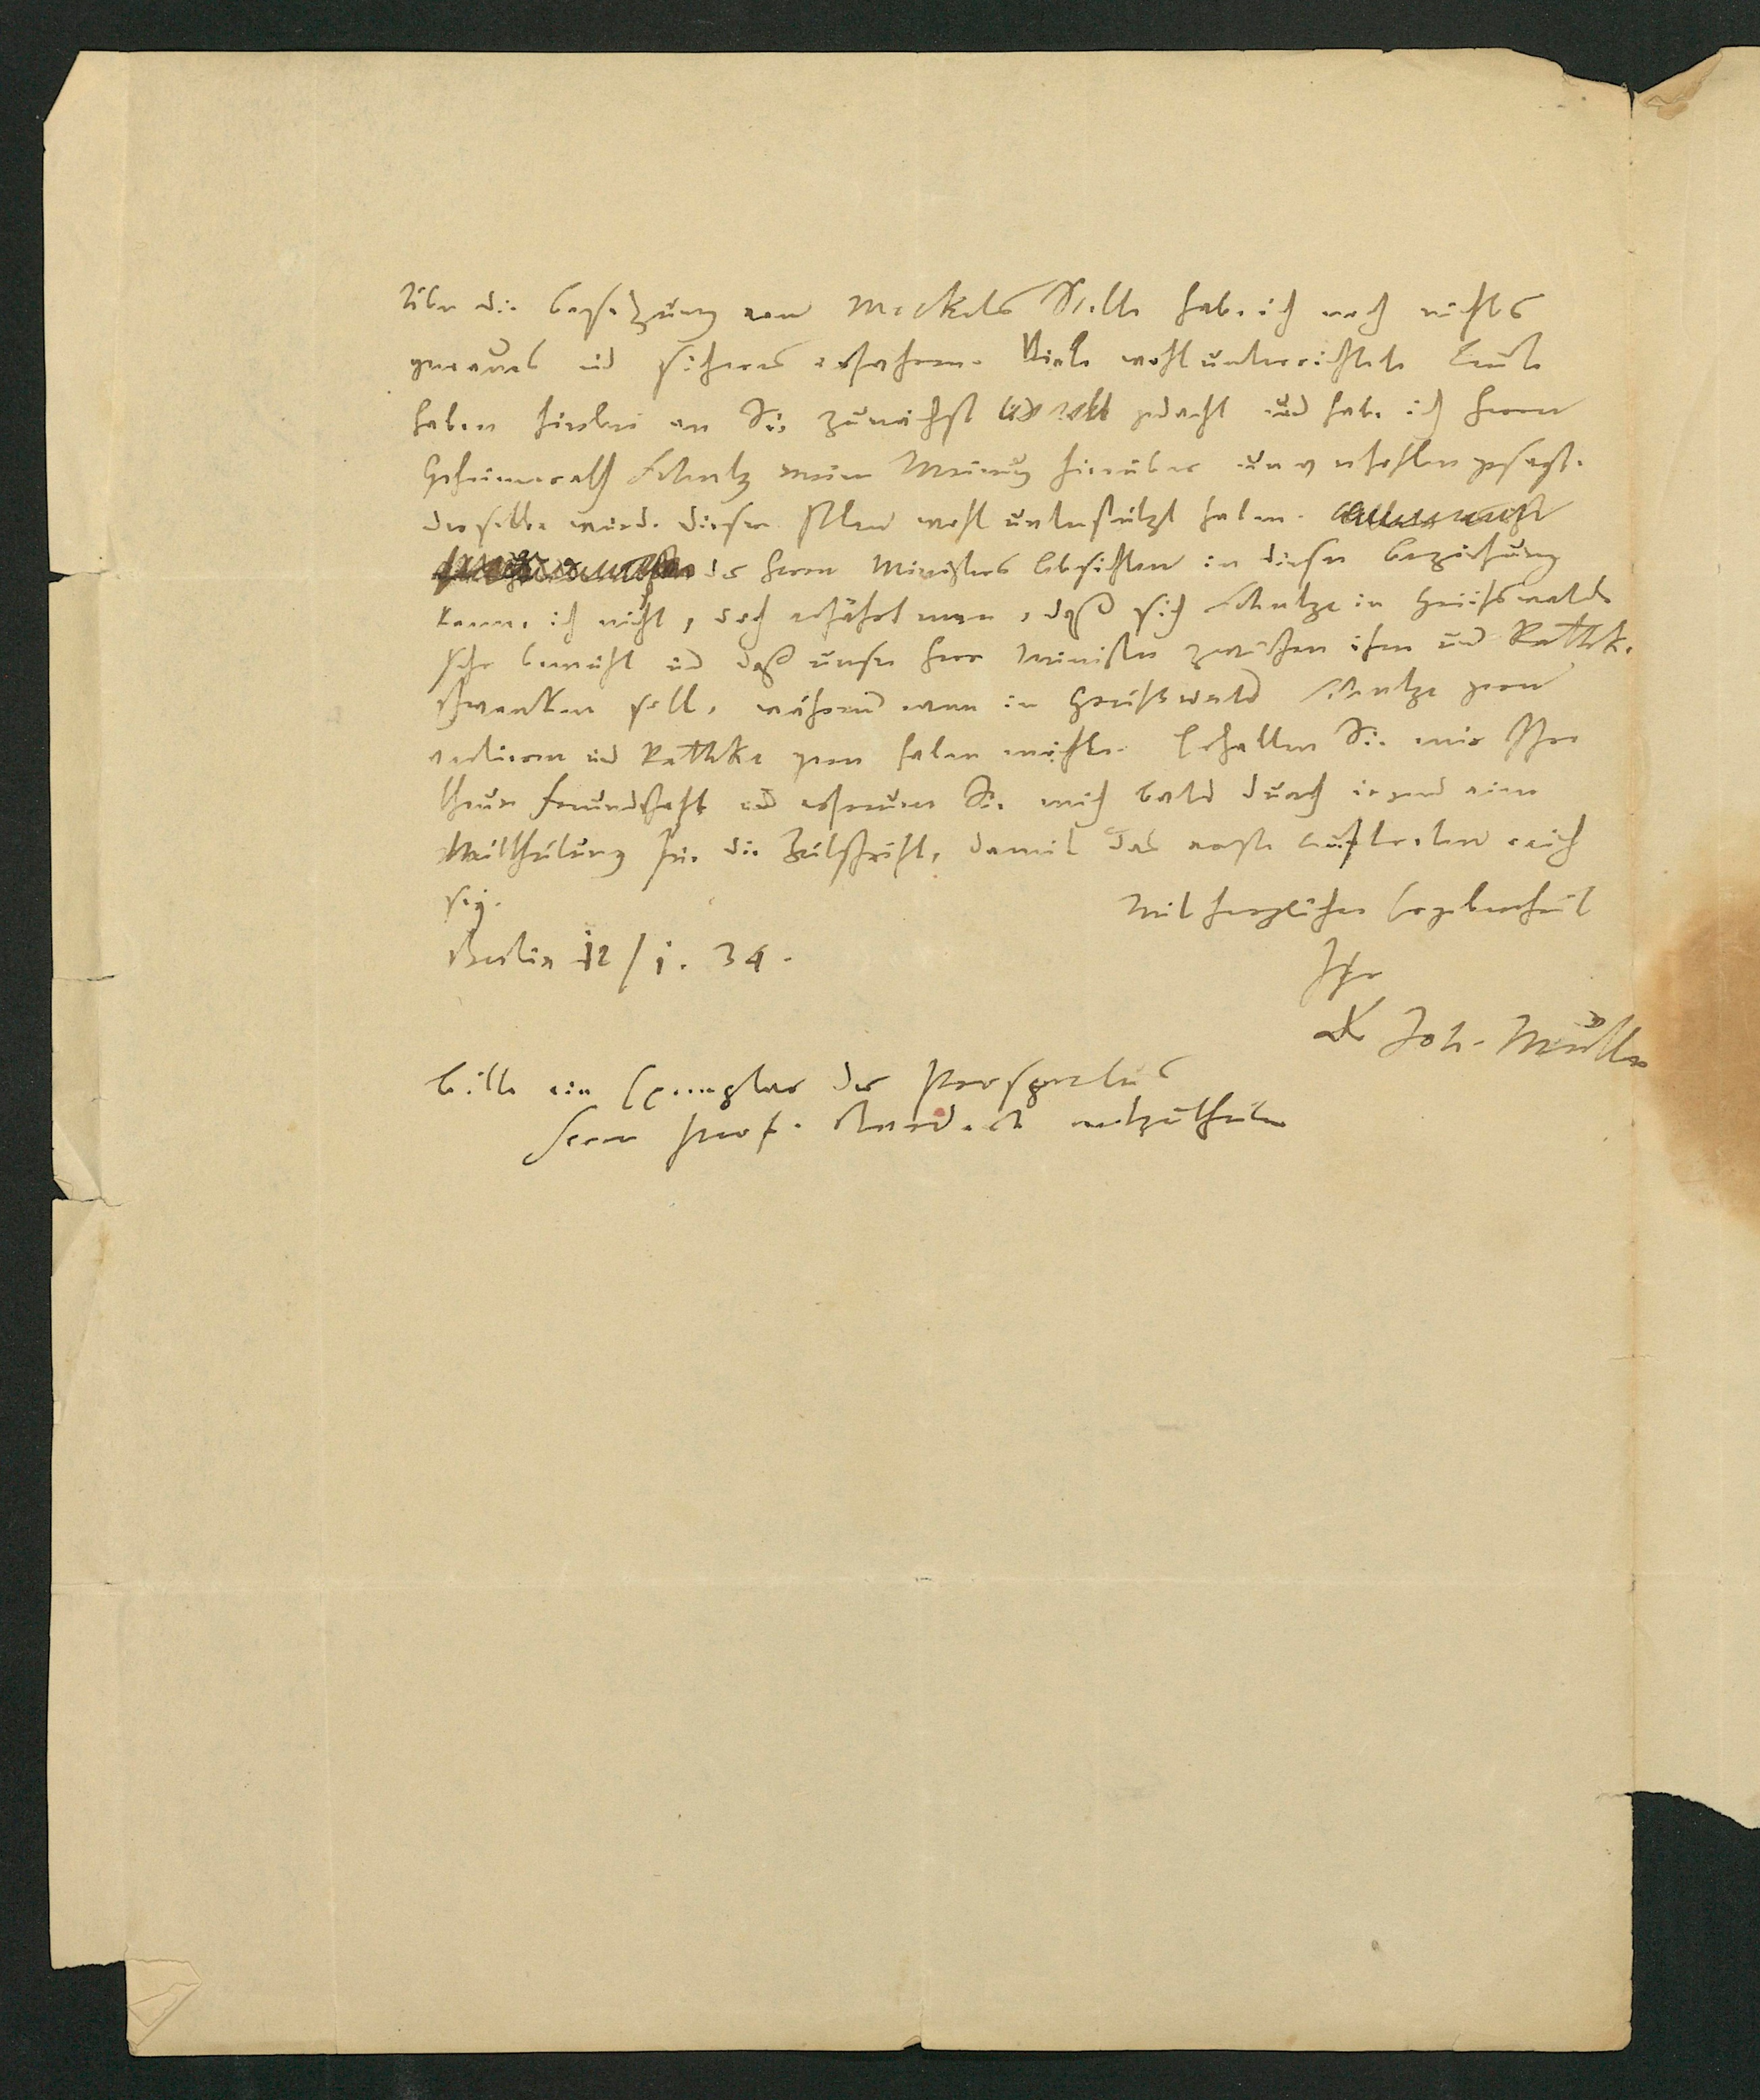 Über die Besetzung von Meckels Stelle habe ich noch nichts
genaues und sicheres erfahren. Viele wohlunterrichtete Leute
haben hierbei an Sie zunächst gedacht und habe ich Herrn
Geheimerath Schulz meine Meinung hierüber unverhohlen gesagt.
derselbe würde diesen Plan wohl unterstützt haben.
des Herrn Ministers Absichten in dieser Beziehung
kenne ich nicht, doch erfährt man, daß sich Schultze in Greifswalde
sehr bemüht und daß unser Herr Minister zwischen ihm und Rathke
schwanken soll, während man in Greifswald Schultze gern
verlieren und Rathke gern haben möchte. Erhalten Sie mir Ihre
theure Freundschaft und erfreuen Sie mich bald durch irgend eine
Mittheilung für die Zeitschrift, damit das erste Auftreten reich
sey.
Mit herzlicher Ergebenheit
Berlin 12/1. 34.
Ihr
Dr Joh. Müller
bitte ein Exemplar des Prospectus
Herrn Prof. Burdach mitzutheilen